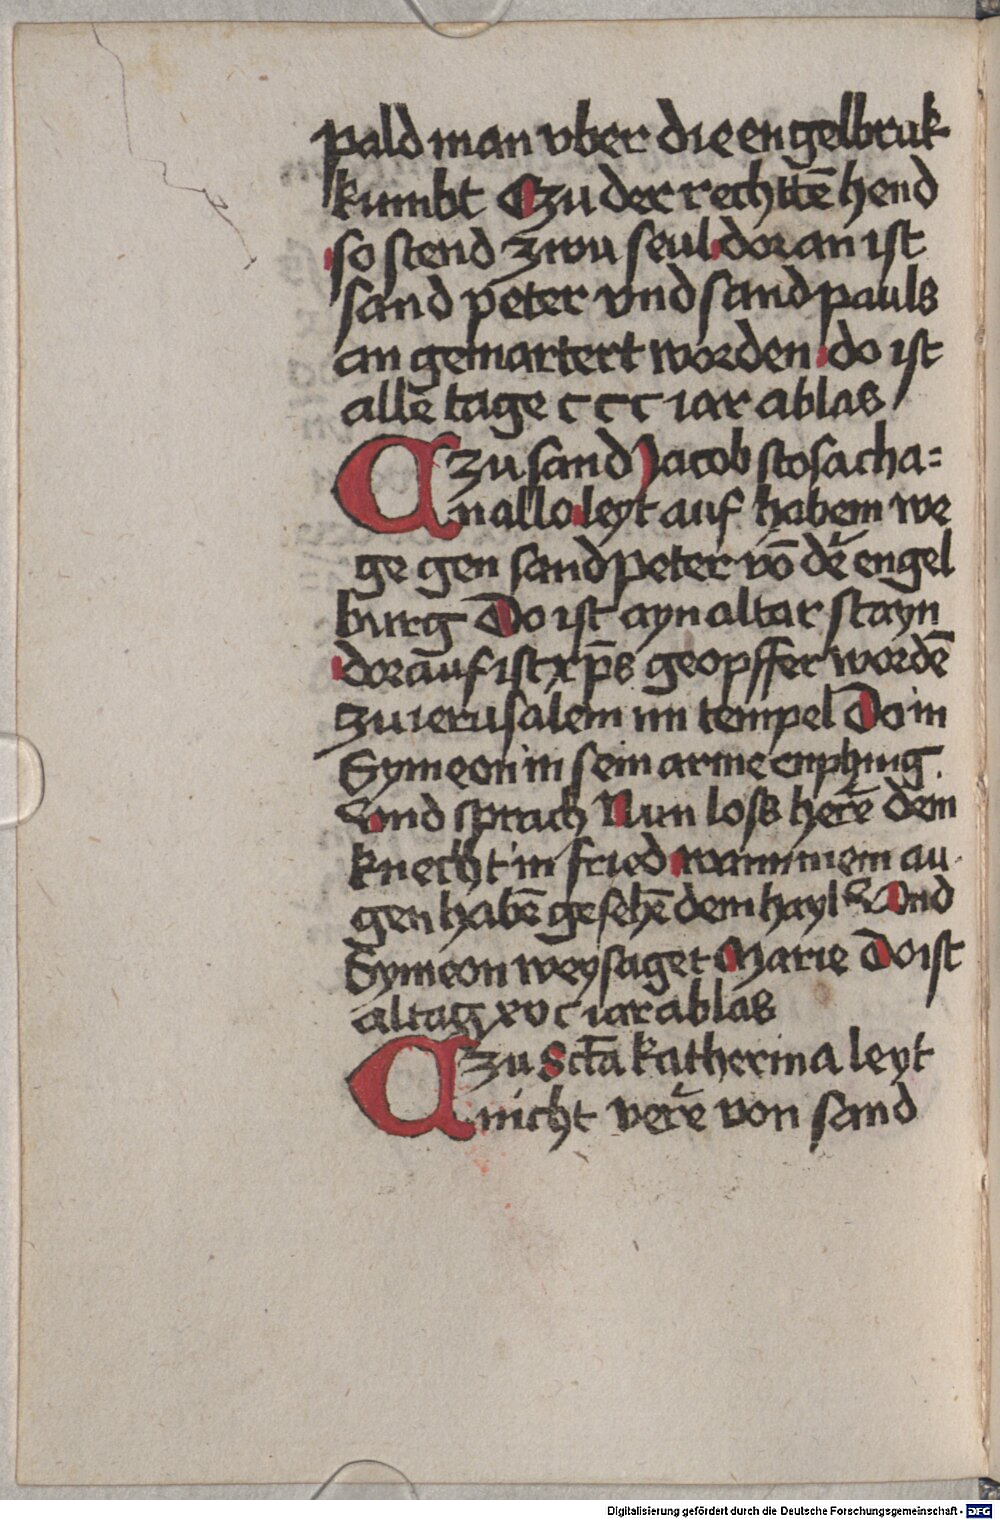 pald man vber die engelbruk
kumbt Czu der rechttē hend
so stend zwu seul doran ist
sand peter vnd sand pauls
an gemartert worden do ist
alle tage c c c iar ablas
Czu sand Jacob stosacha=
nallo leyt auf habem we
ge gen sand peter vō der engel
burg Do ist ayn altar stayn
dorauf ist xp̄s geopffer wordē
zu ierusalem im tempel Do in
Symeon in sein arme enphing
Vnd sprach Nun loss here dem
knecht in fried wann mein au
gen habē gesehē dem hayl Vnd
Symeon weysaget Marie Do ist
altag xv c iar ablas
Czu Scta katherina leyt
nicht vere von sand
Digitalisierung gefördert durch die Deutsche Forschungsgemeinschaft - DFG